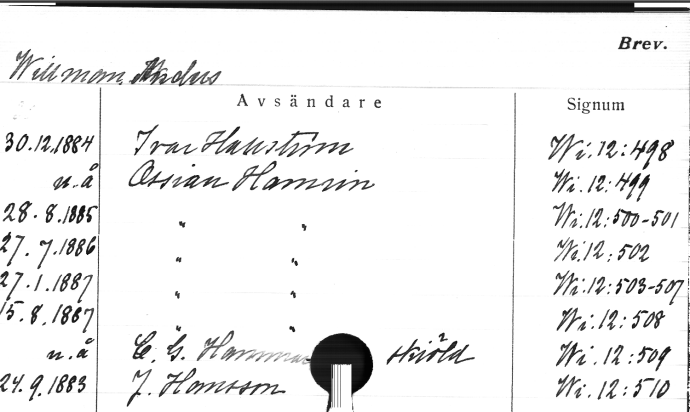 Brev.
Willman, Andus
Avsändare Signum
30.12.1884 Ivar Hallström Wi.12:498
u.å Ossian Hamrin Wi.12:499
28.8.1885 " " Wi.12:500-501
27.7.1886 " " Wi.12:502
27.1.1887 " " Wi.12:503-507
15.8.1887 " " Wi.12:508
u.å C. G. skiöld Wi.12:509
24.9.1883 J. Hansson Wi.12:510